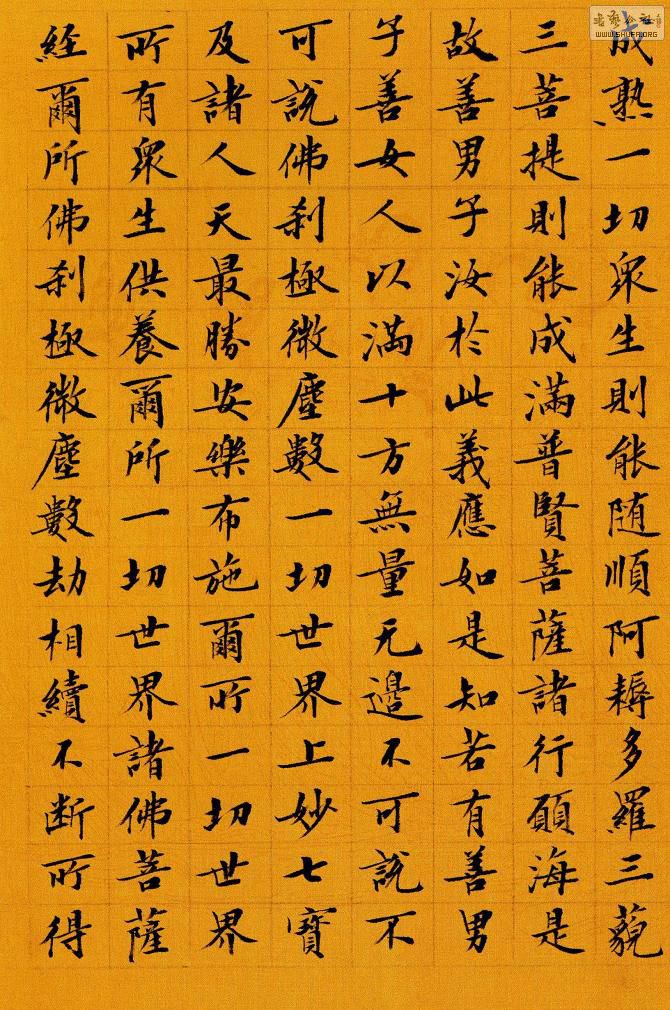 成熟一切衆生則能随順阿耨多羅三藐
三菩提則能成滿普賢菩薩諸行願海是
故善男子汝於此義應如是知若有善男
子善女人以滿十方無量无邊不可說不
可說佛刹極微塵數一切世界上妙七寶
及諸人天最勝安樂布施爾所一切世界
所有衆生供養爾所一切世界諸佛菩薩
経爾所佛刹極微塵數劫相續不断所得
WWW.SHUFA.ORG